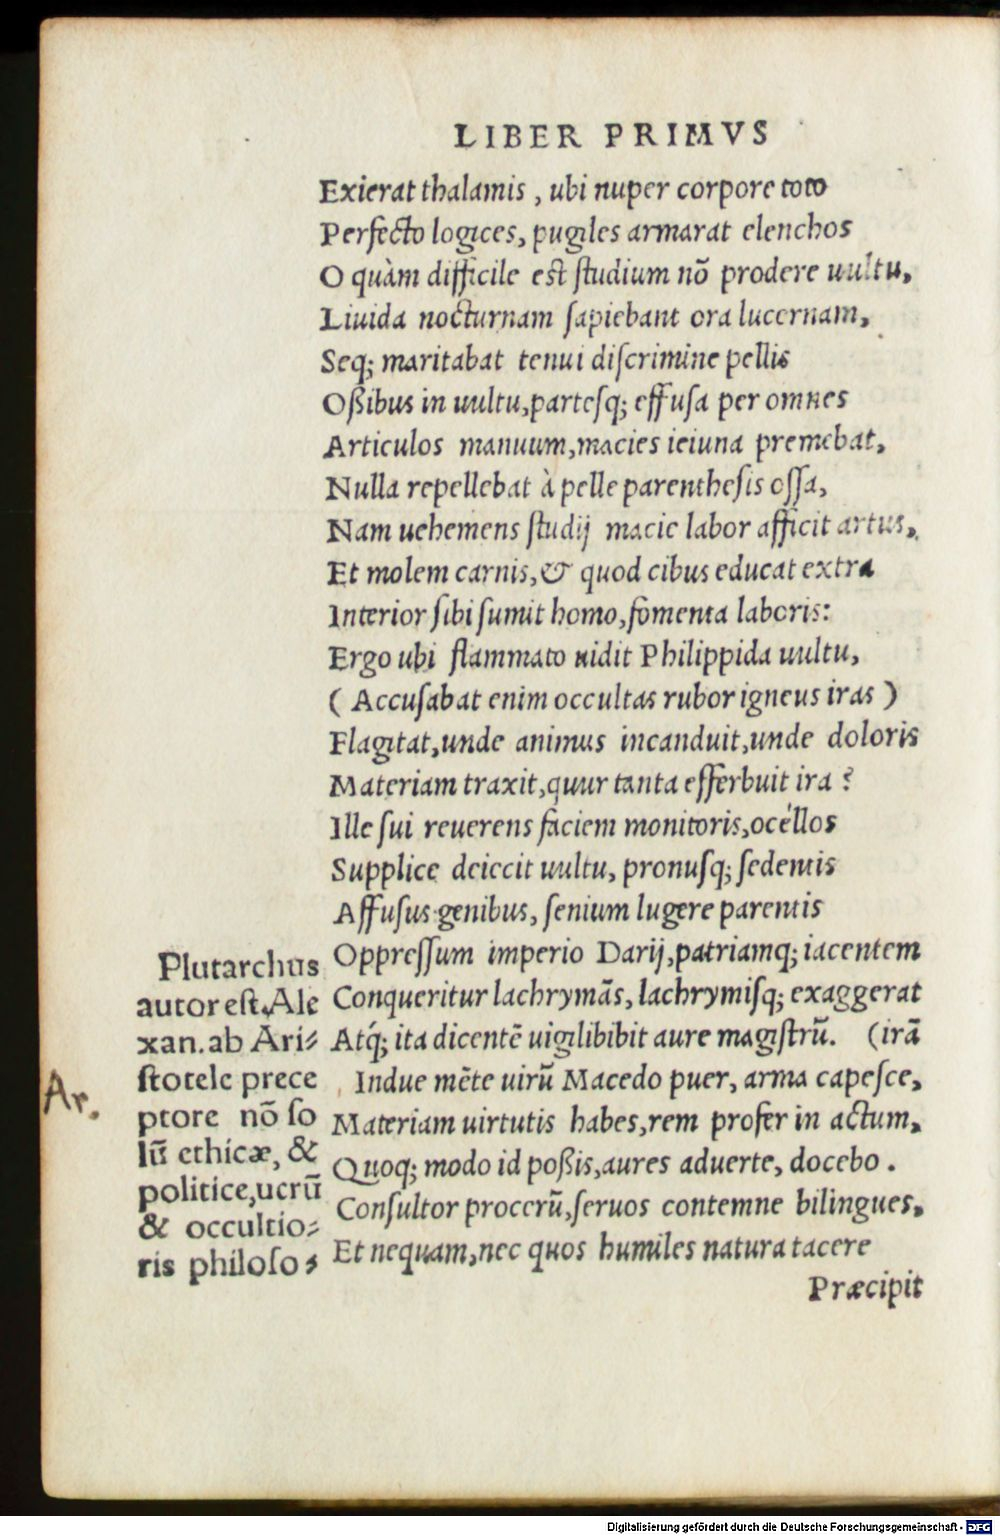 LIBER PRIMVS
Exierat thalamis, ubi nuper corpore toto
Perfecto logices, pugiles armarat elenchos
O quàm difficile est ſtudium nō prodere uultu,
Liuida nocturnam ſapiebant ora lucernam,
Seq; maritabat tenui diſcrimine pellis
Oßibus in uultu, partesq; effuſa per omnes
Articulos manuum, macies ieiuna premebat,
Nulla repellebat à pelle parentheſis oſſa,
Nam uehemens ſtudij macie labor afficit artus,
Et molem carnis, & quod cibus educat extra
Interior ſibi ſumit homo, fomenta laboris:
Ergo ubi flammato uidit Philippida uultu,
( Accuſabat enim occultas rubor igneus iras )
Flagitat, unde animus incanduit, unde doloris
Materiam traxit, quur tanta efferbuit ira ?
Ille ſui reuerens faciem monitoris, océllos
Supplice deiecit uultu, pronuſq; ſedentis
Affuſus genibus, ſenium lugere parentis
Oppreſſum imperio Darij, patriamq; iacentem
Conqueritur lachrymãs, lachrymiſq; exaggerat
Atq́; ita dicentē uigilibibit aure magiſtrũ. (irã
Indue mēte uirũ Macedo puer, arma capeſce,
Materiam uirtutis habes, rem profer in actum,
Quoq; modo id poßis, aures aduerte, docebo.
Conſultor procerũ, ſeruos contemne bilingues,
Et nequam, nec quos humiles natura tacere
Præcipit
Plutarchus
autor eſt, Ale
xan. ab Ari⸗
ſtotele prece
ptore nō ſo
lũ ethicæ, &
politice, uerũ
& occultio⸗
ris philoſo⸗
Ar.
Digitalisierung gefördert durch die Deutsche Forschungsgemeinschaft - DFG